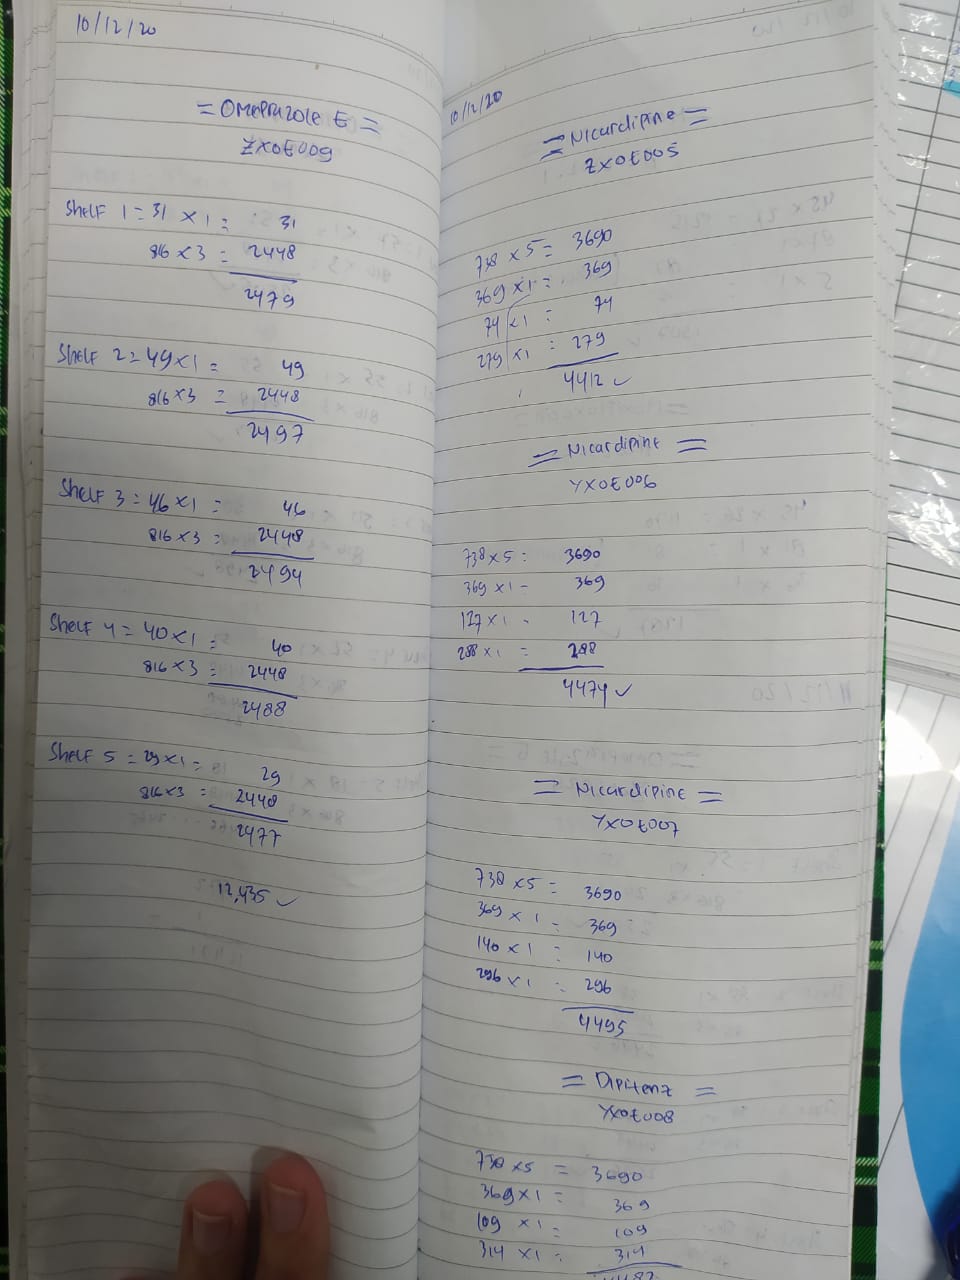 10/12/20
= Omeprazole E =
ZX0E009
Shelf 1 = 31 × 1 = 31
816 × 3 = 2448
2479
Shelf 2 = 49 × 1 = 49
816 × 3 = 2448
2497
Shelf 3 = 46 × 1 = 46
816 × 3 = 2448
2494
Shelf 4 = 40 × 1 = 40
816 × 3 = 2448
2488
Shelf 5 = 29 × 1 = 29
816 × 3 = 2448
2477
12,435 ✓
10/12/20
= Nicardipine =
ZX0E005
738 × 5 = 3690
369 × 1 = 369
74 × 1 = 74
279 × 1 = 279
4412 ✓
= Nicardipine =
YX0E006
738 × 5 = 3690
369 × 1 = 369
127 × 1 = 127
288 × 1 = 288
4474 ✓
= Nicardipine =
YX0E007
738 × 5 = 3690
369 × 1 = 369
140 × 1 = 140
296 × 1 = 296
4495
= Dipitenz =
YX0E008
738 × 5 = 3690
369 × 1 = 369
109 × 1 = 109
314 × 1 = 314
4482